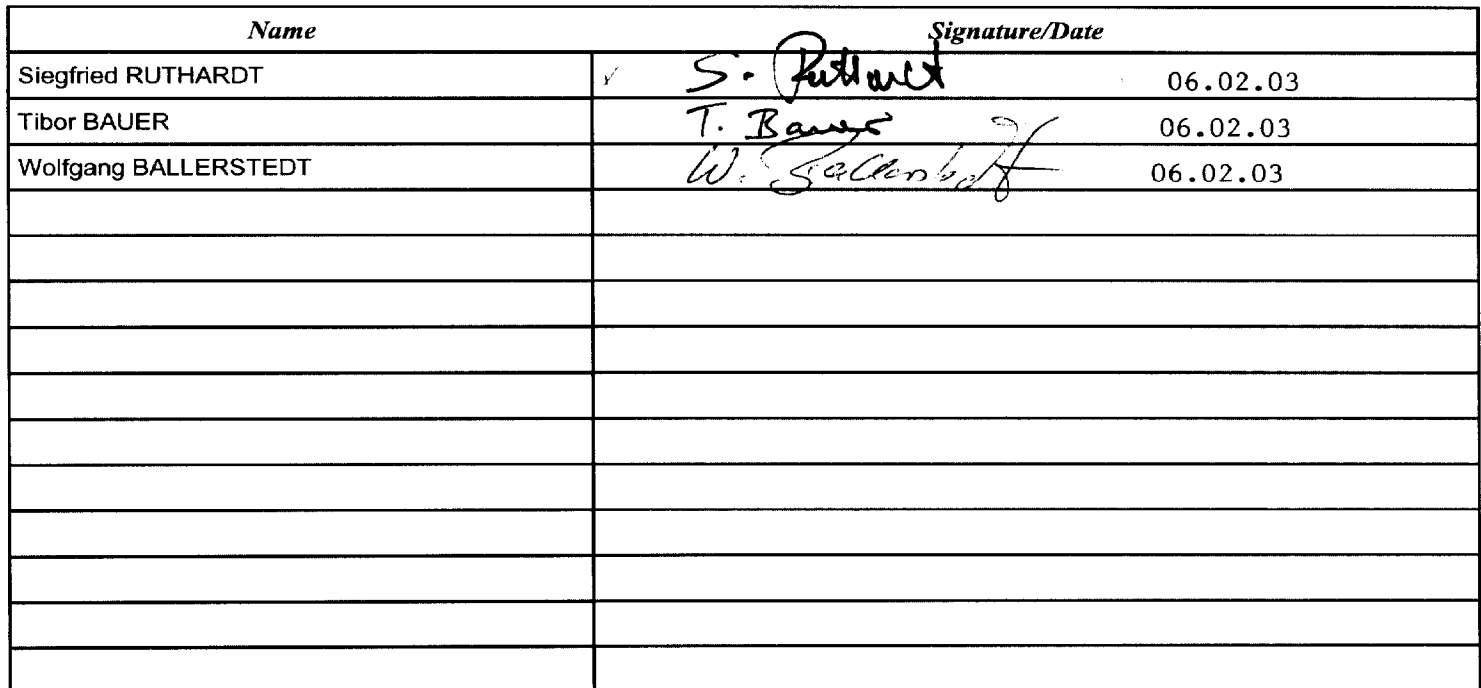 Name Signature/Date
Siegfried RUTHARDT S. Ruthardt 06.02.03
Tibor BAUER T. Bauer 06.02.03
Wolfgang BALLERSTEDT W. Ballerstedt 06.02.03